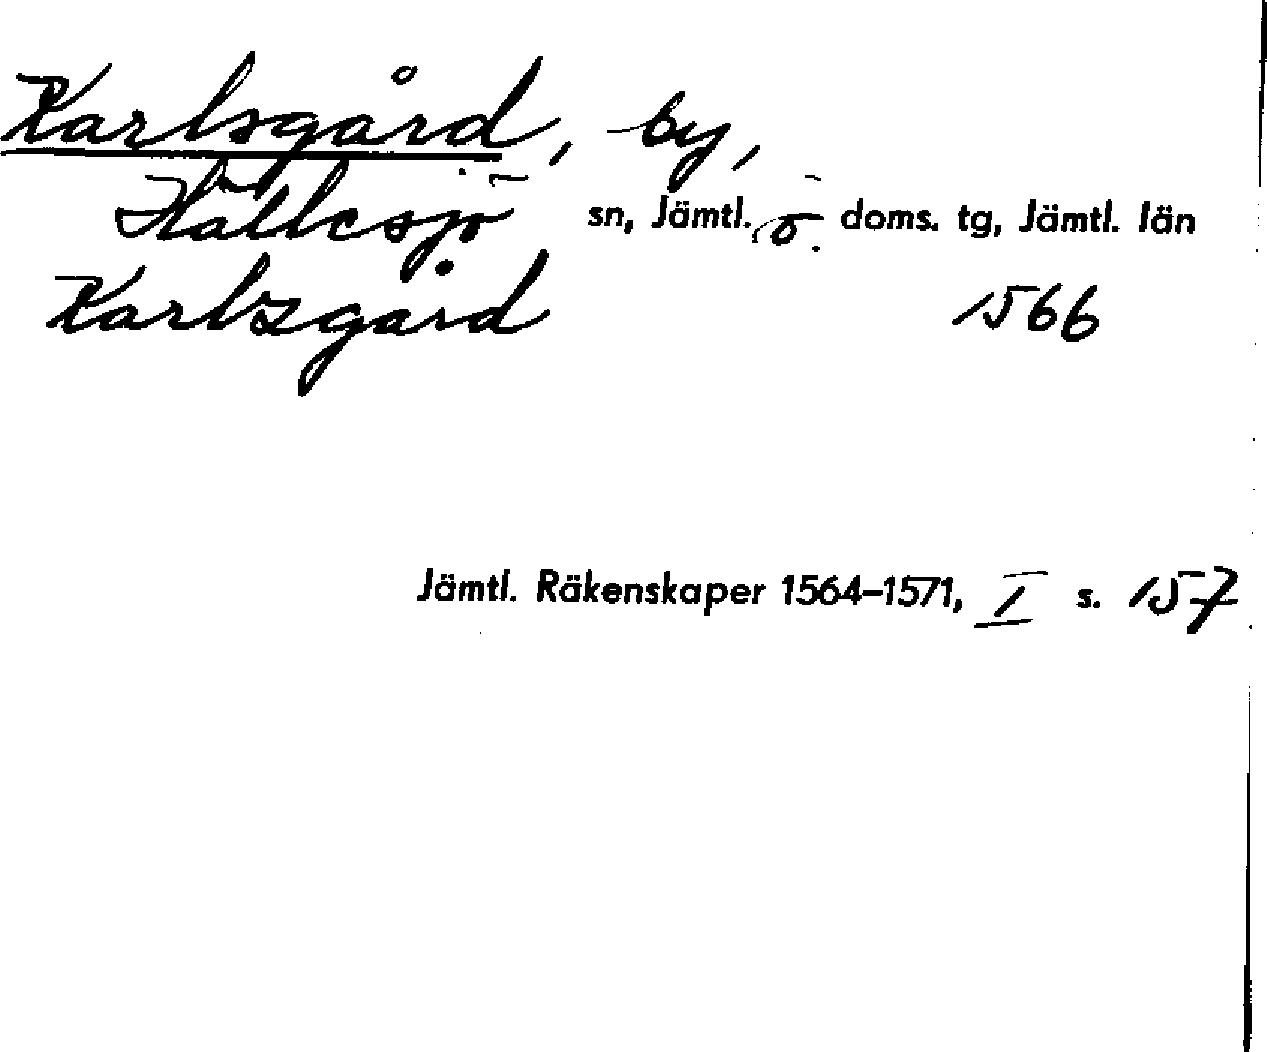 Karlsgård, by,
Hällesjö sn, Jämtl. ö. doms. tg, Jämtl. län
Karlzgård 1566
Jämtl. Räkenskaper 1564–1571, I s. 157